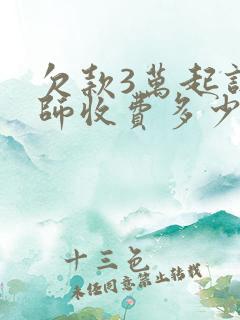 欠款3萬起
師收費多少
十三色
未经同意禁止转载